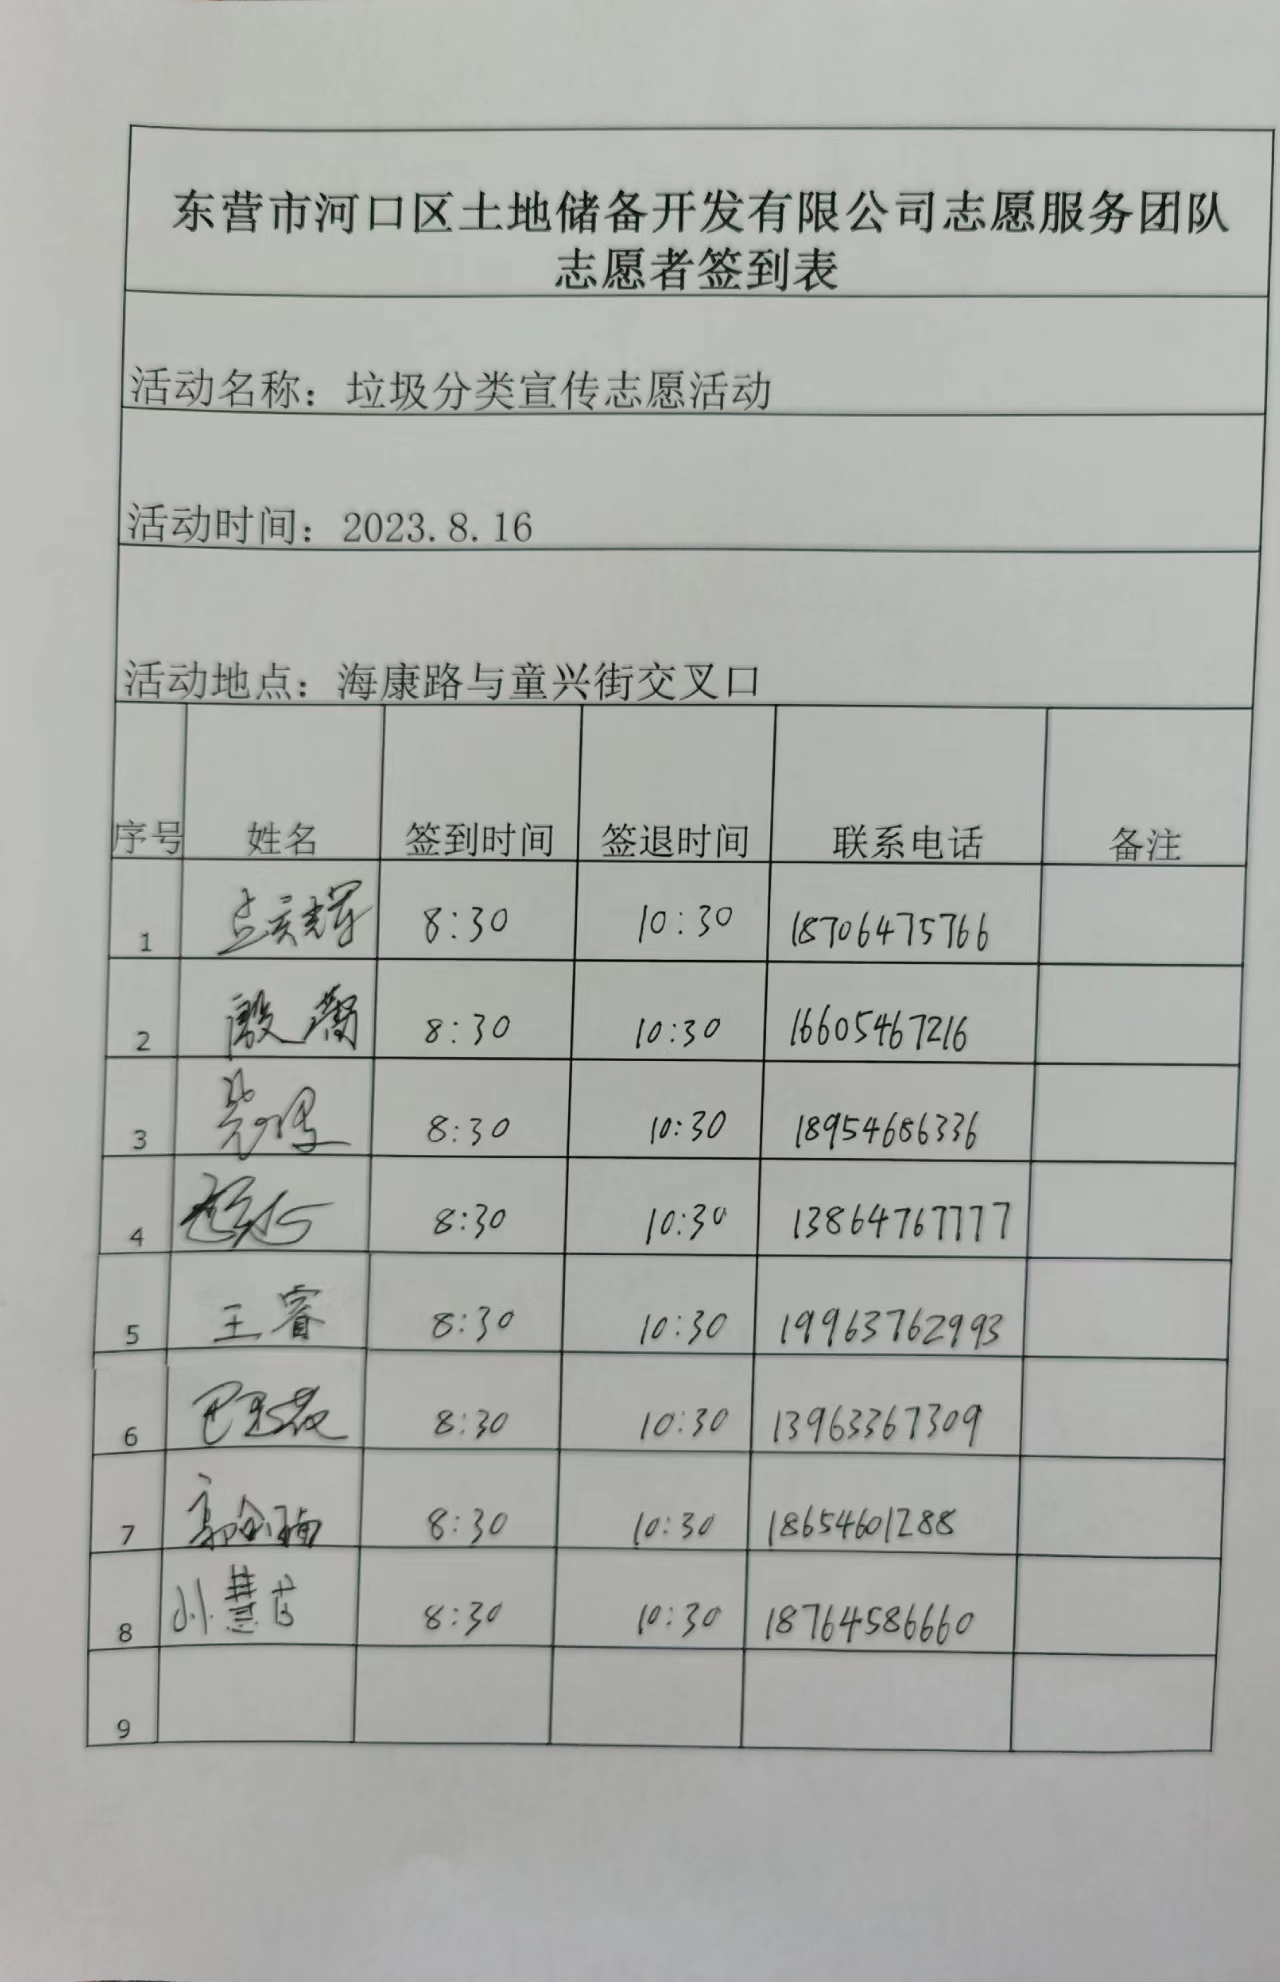 东营市河口区土地储备开发有限公司志愿服务团队
志愿者签到表
活动名称：垃圾分类宣传志愿活动
活动时间：2023.8.16
活动地点：海康路与童兴街交叉口
序号 姓名 签到时间 签退时间 联系电话 备注
1 8:30 10:30 18706475766
2 殷 8:30 10:30 16605467216
3 8:30 10:30 18954686336
4 8:30 10:30 13864767777
5 王睿 8:30 10:30 19963762993
6 8:30 10:30 13963367309
7 郭 8:30 10:30 18654601288
8 8:30 10:30 18764586660
9